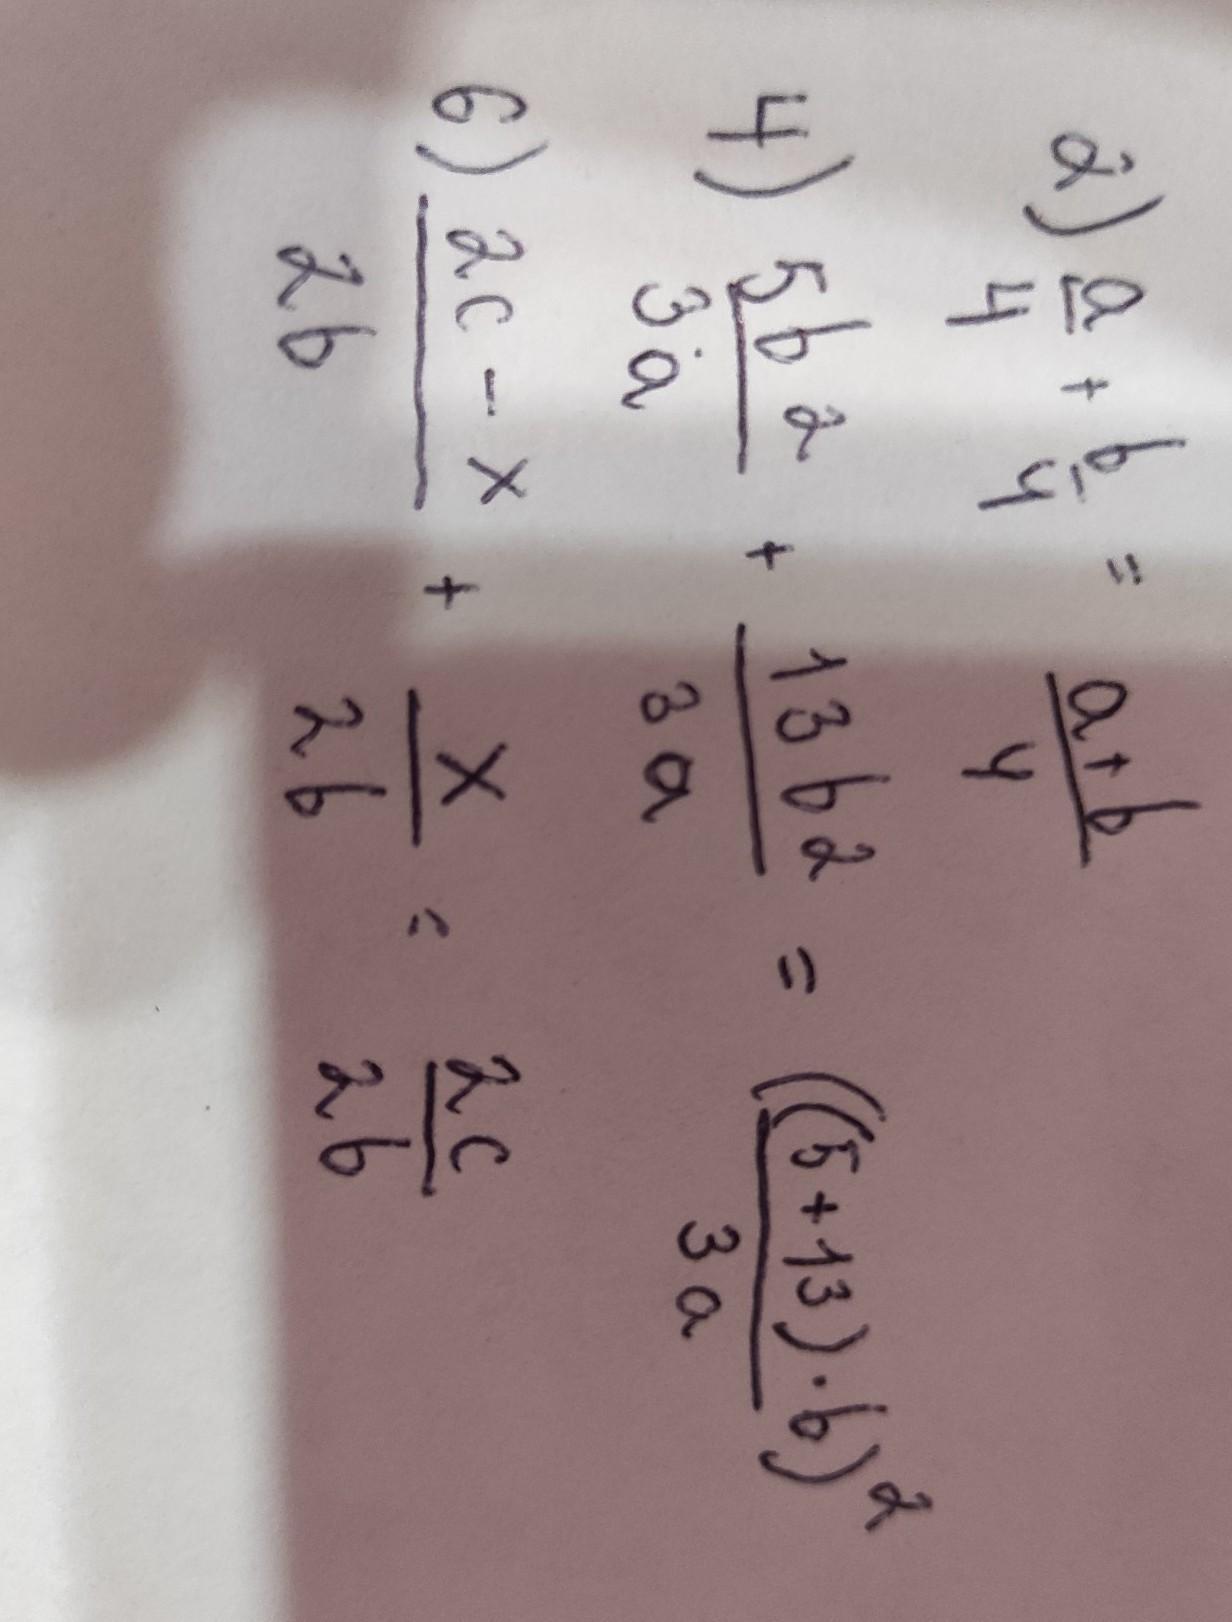 2) a/4 + b/4 = a+b/4
4) 5b²/3a + 13b²/3a = ((5+13)·b)²/3a
6) 2c-x/2b + x/2b = 2c/2b